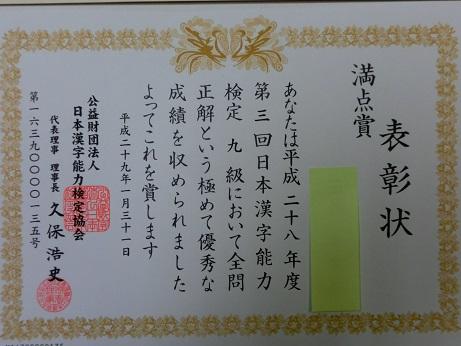 表彰状
満点賞
あなたは平成二十八年度
第三回日本漢字能力
検定 九 級において全問
正解という極めて優秀な
成績を収められました
よってこれを賞します
平成二十九年一月三十一日
公益財団法人
日本漢字能力検定協会
代表理事 理事長 久保浩史
第一六三九〇〇〇〇一三五号